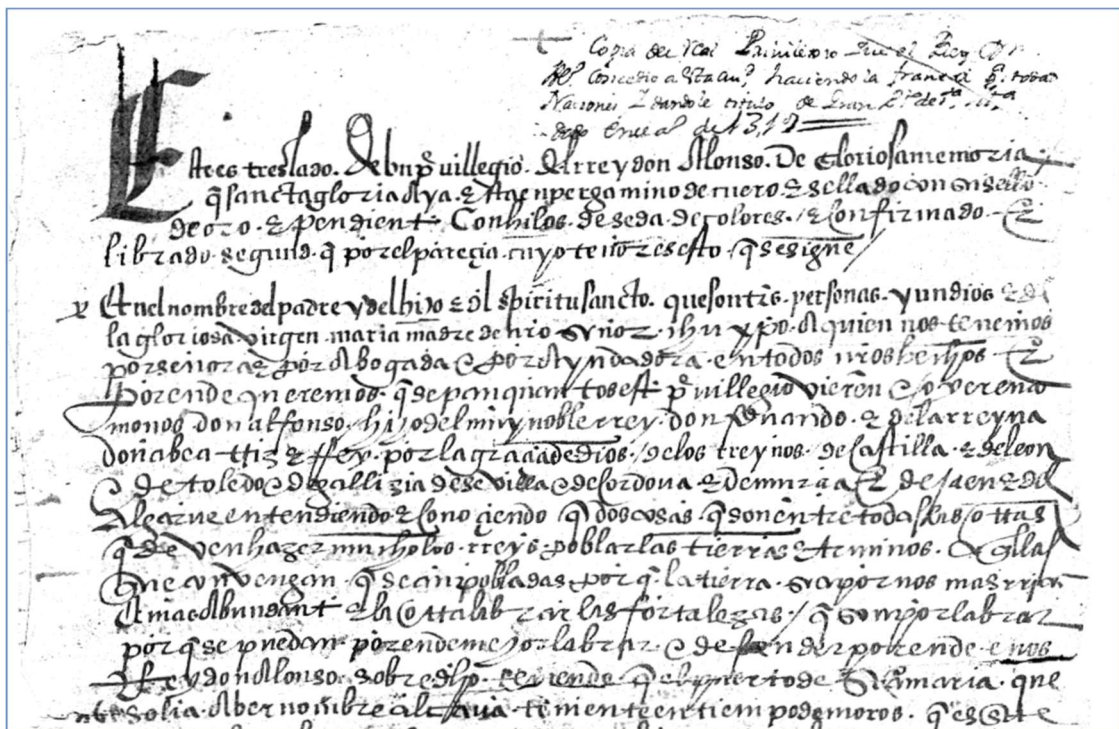 Copia del Real Privilegio que el Rey Dn
Alo. Concedio a Esta Ciu.d haciendola franca
Naciones y dandole titulo de Gran
de 131
Este es treslado. de bu pᵉuillegio. del rrey don Alonso. De gloriosa memoria
q̃ sancta gloria Aya. escripto en pergamino de cuero. & sellado con su sello
de oro. & pendient Con hilos. de seda. de colores. & confirmado. &
librado. segund. q̃ por el pareçia. cuyo tenor es esto. q̃ se sigue /
En el nombre del padre y del hijo & dl spiritu sancto. que son trs. personas. y un dios & de
la gloriosa. virgen. maria madre de nro Señor. ihu xpo. A quien nos tenemos
por señora & por Abogada & por Ayudadora. en todos nros hechos. &
Por ende queremos. q̃ sepan quantos est pᵉuillegio vieren & oyeren como
nos don alfonso. hijo del muy noble rrey. don fernando. & de la rreyna
doña beattiz & Rey. por la graçia de dios / de los rreynos. de Castilla. & de leon
& de toledo & de gallizia de seuilla & de Cordoua. & de murçia & de Jaen & del
Algarue entendiendo & Conoçiendo q̃ dos cosas. q̃ son entre todas las ottas
q̃ deuen hazer mucho los. rreys poblar las tierras & terminos. Aquellas
que convengan. q̃ sean pobladas. por q̃. la tierra. sea por nos mas rrica
E mas Abundant & la otta labrar las fortalezas. / q̃ son por labrar
por q̃ se puedan por ende mejor labrar. & defender por ende. e nos
Rey don Alonso. sobredho. q̃ el puerto de Sta maria. que
ante solia. Aber nombre alcanatte en tiempo de moros. q̃ es